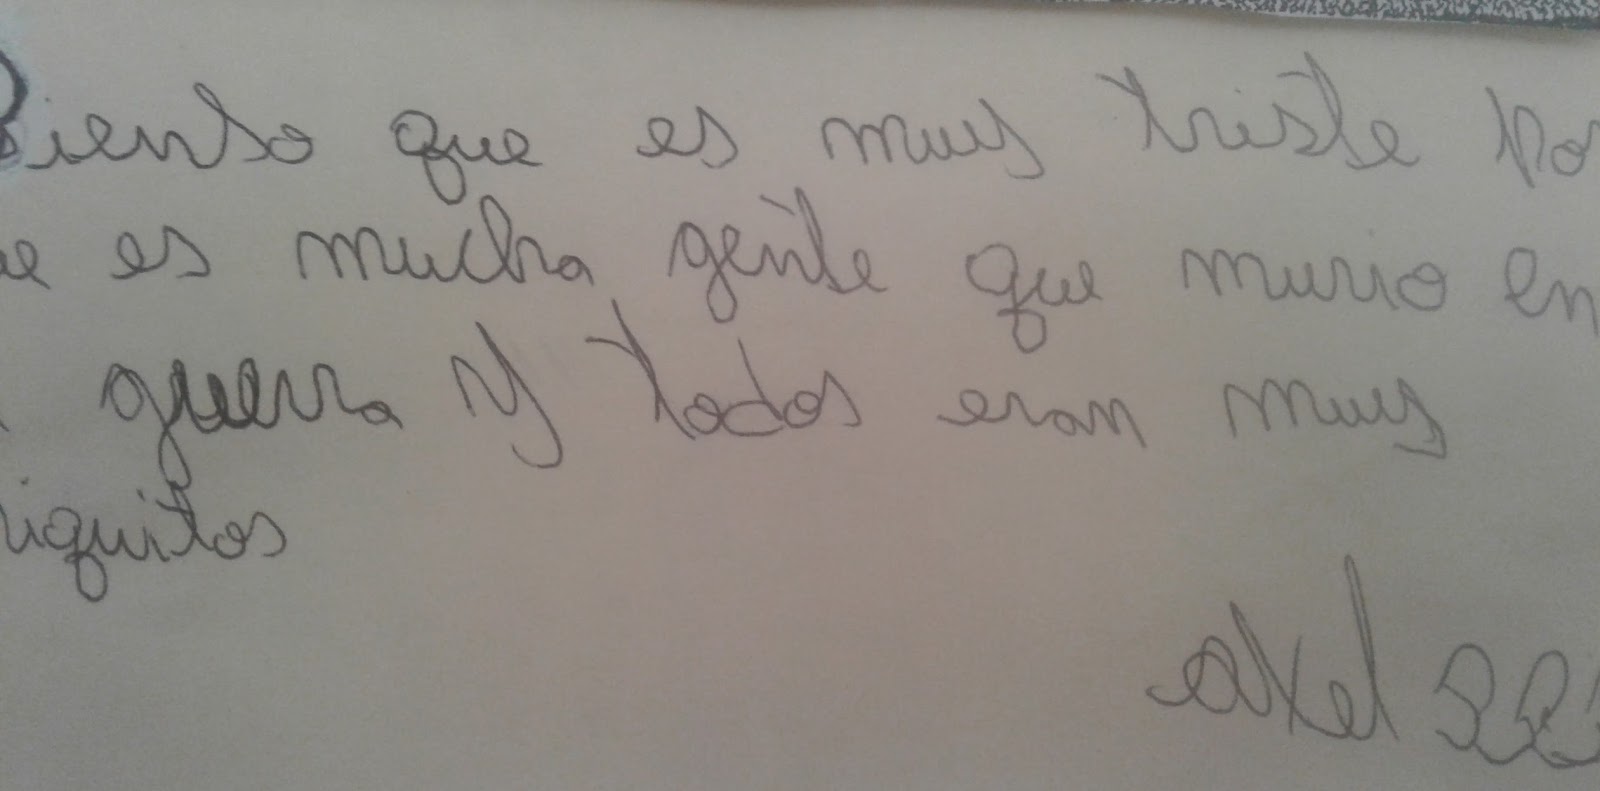 Siento que es muy triste por
ue es mucha gente que murio en
guerra y todos eran muy
iquitos
axel